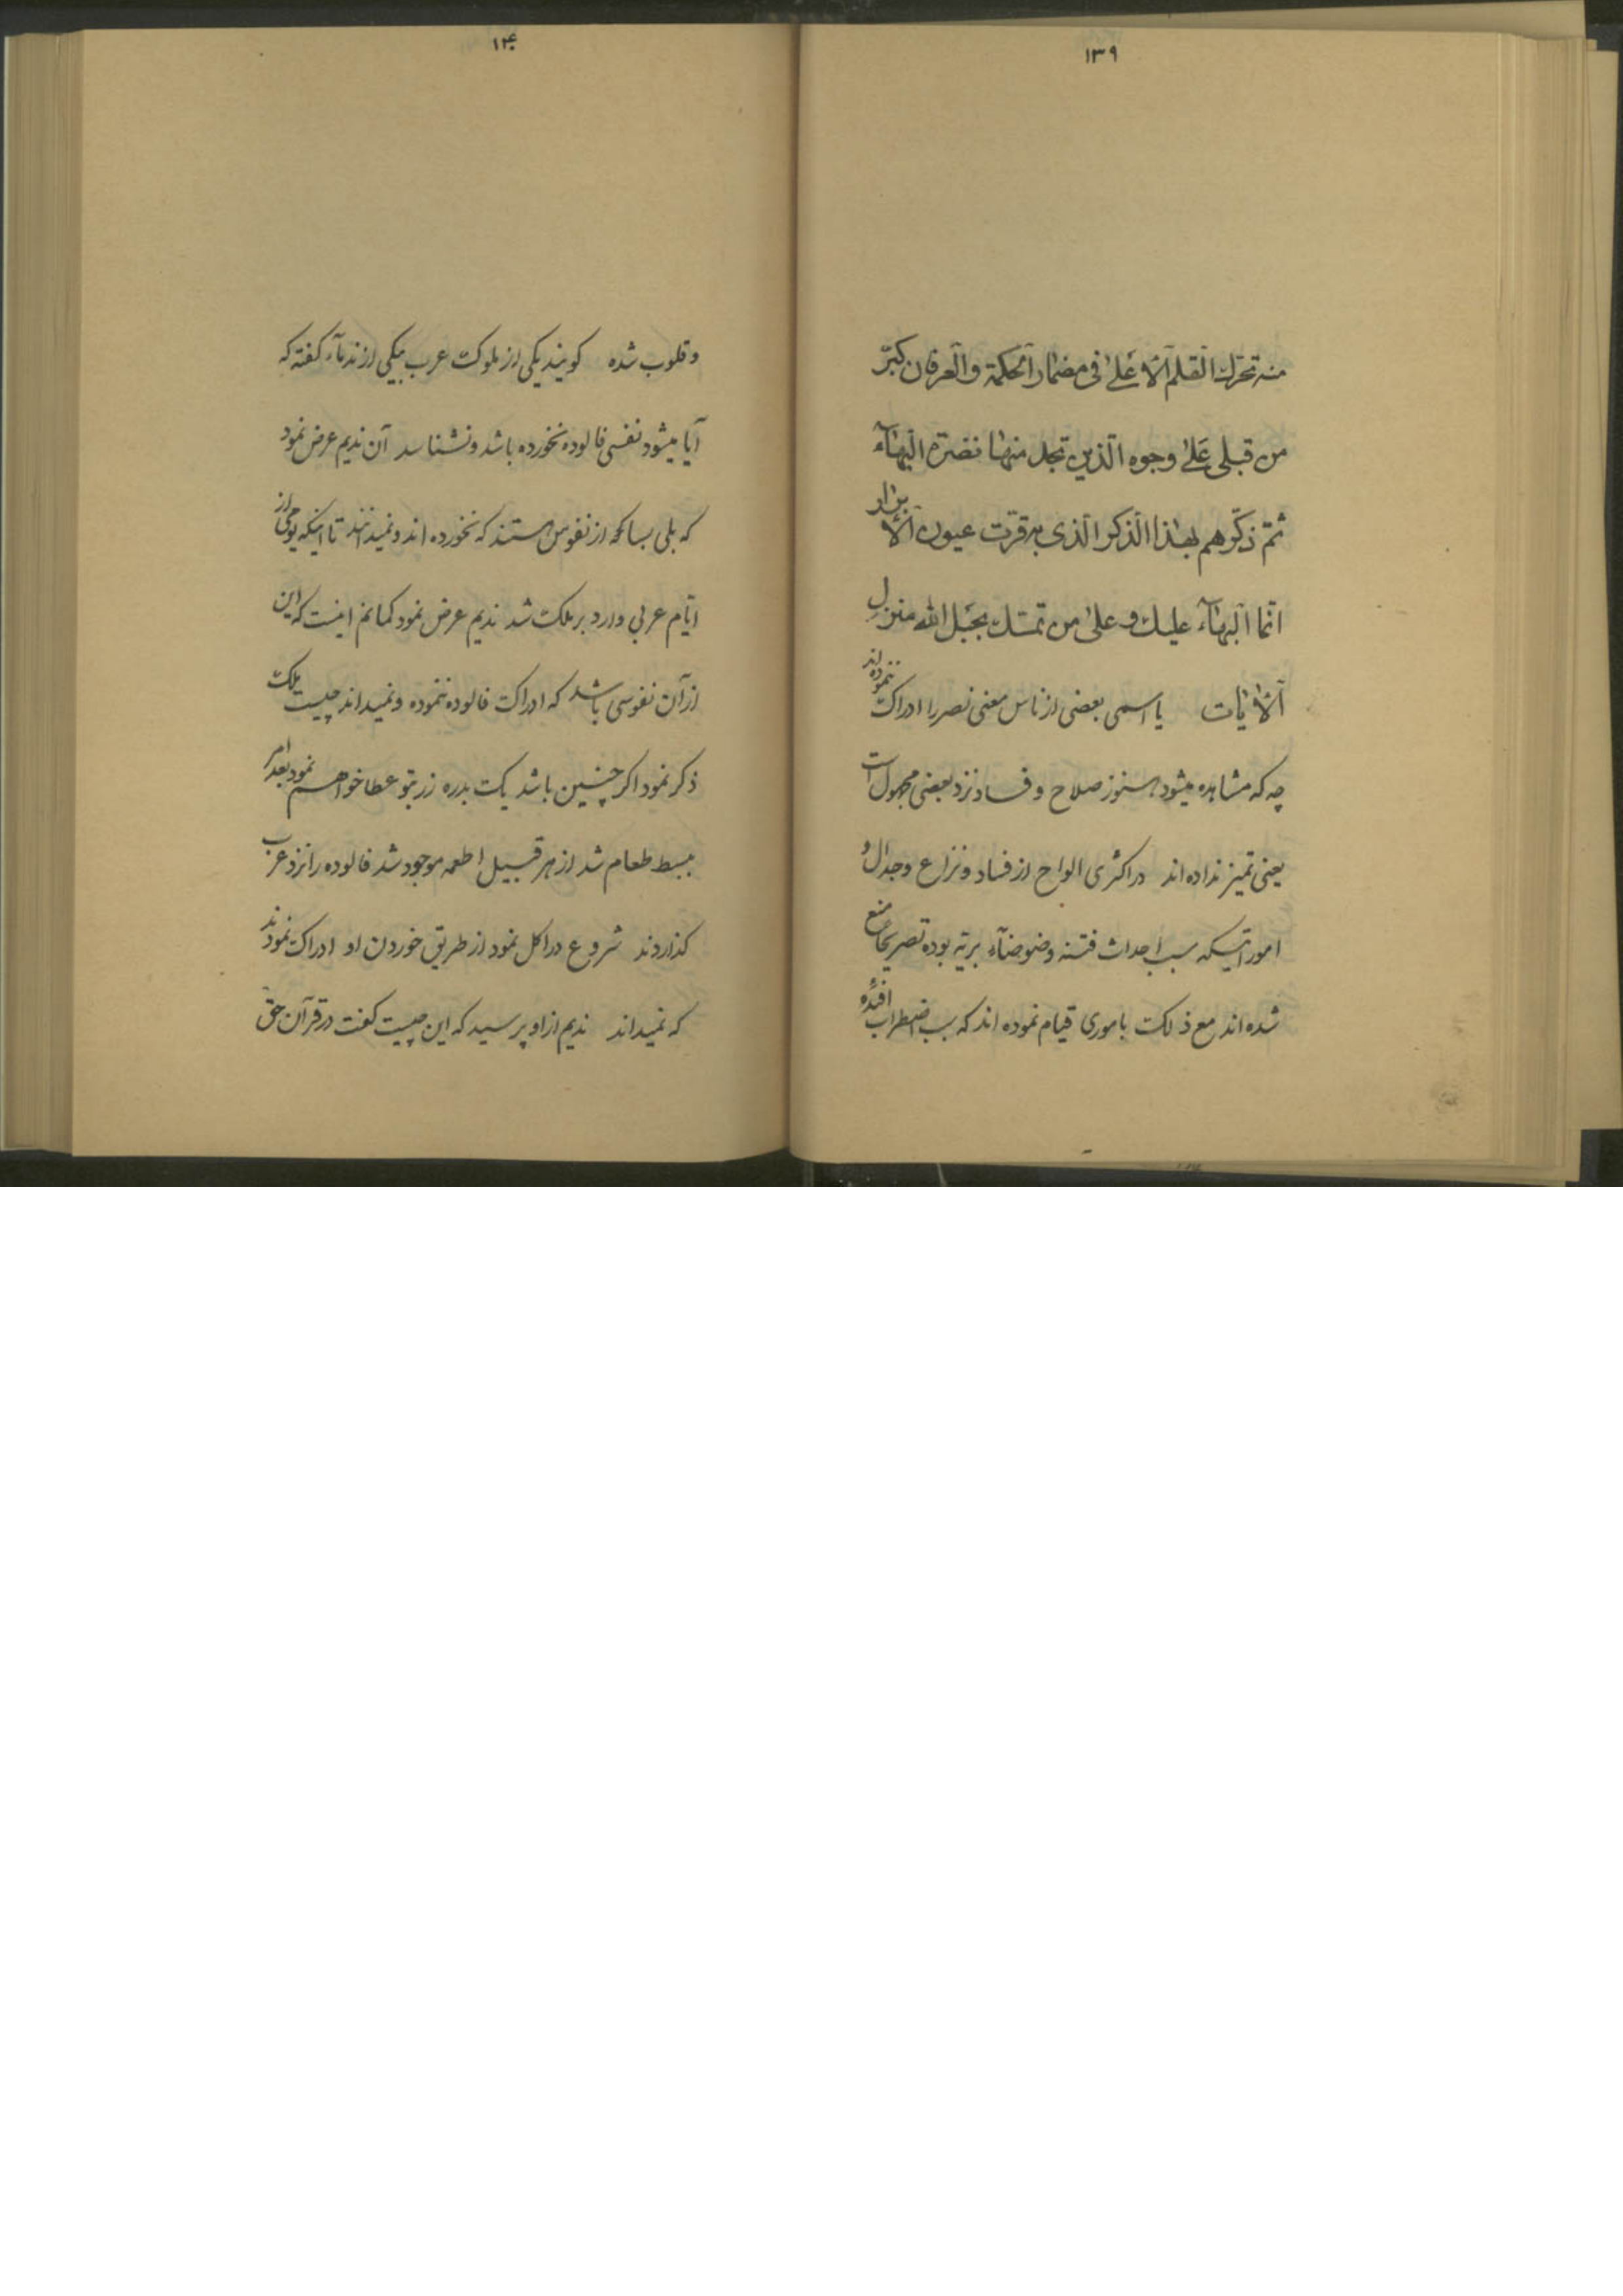 ۱۳۹
منه تحرّك القلم الأعلیٰ فی مضمار الحكمة و العرفان كبّر
من قبلی علیٰ وجوه الّذین تجد منها نضرة البهآء
ثمّ ذكّرهم بهذا الذّكر الّذی به قرّت عیون الأبرار
انّما البهآء علیك و علیٰ من تمسّك بحبل الله منزل
الأیات یا اسمی بعضی از ناس معنی نصر را ادراک ننموده‌اند
چه که مشاهده میشود هنوز صلاح و فساد نزد بعضی مجهول است
یعنی تمیز نداده‌اند در اکثری الواح از فساد و نزاع و جدال و
اموراتیکه سبب احداث فتنه و ضوضآء بریّه بوده تصریحاً منع
شده‌اند مع ذلک باموری قیام نموده‌اند که سبب اضطراب افئده
۱۴۰
و قلوب شده کویند یکی از ملوک عرب بیکی از ندمآء کفته که
آیا میشود نفسی فالوده نخورده باشد و نشناسد آن ندیم عرض نمود
که بلی بسا از نفوس هستند که نخورده‌اند و نمیدانند تا اینکه یومی از
ایّام عربی وارد بر ملک شد ندیم عرض نمود کمانم اینست که این
از آن نفوسی باشد که ادراک فالوده ننموده و نمیداند چیست ملک
ذکر نمود اکر چنین باشد یک بدره زر بتو عطا خواهم نمود بعد امر
ببسط طعام شد از هر قبیل اطعمه موجود شد فالوده را نزد عرب
کذاردند شروع در اکل نمود از طریق خوردن او ادراک نمودند
که نمیداند ندیم از او پرسید که این چیست کفت در قرآن حقّ